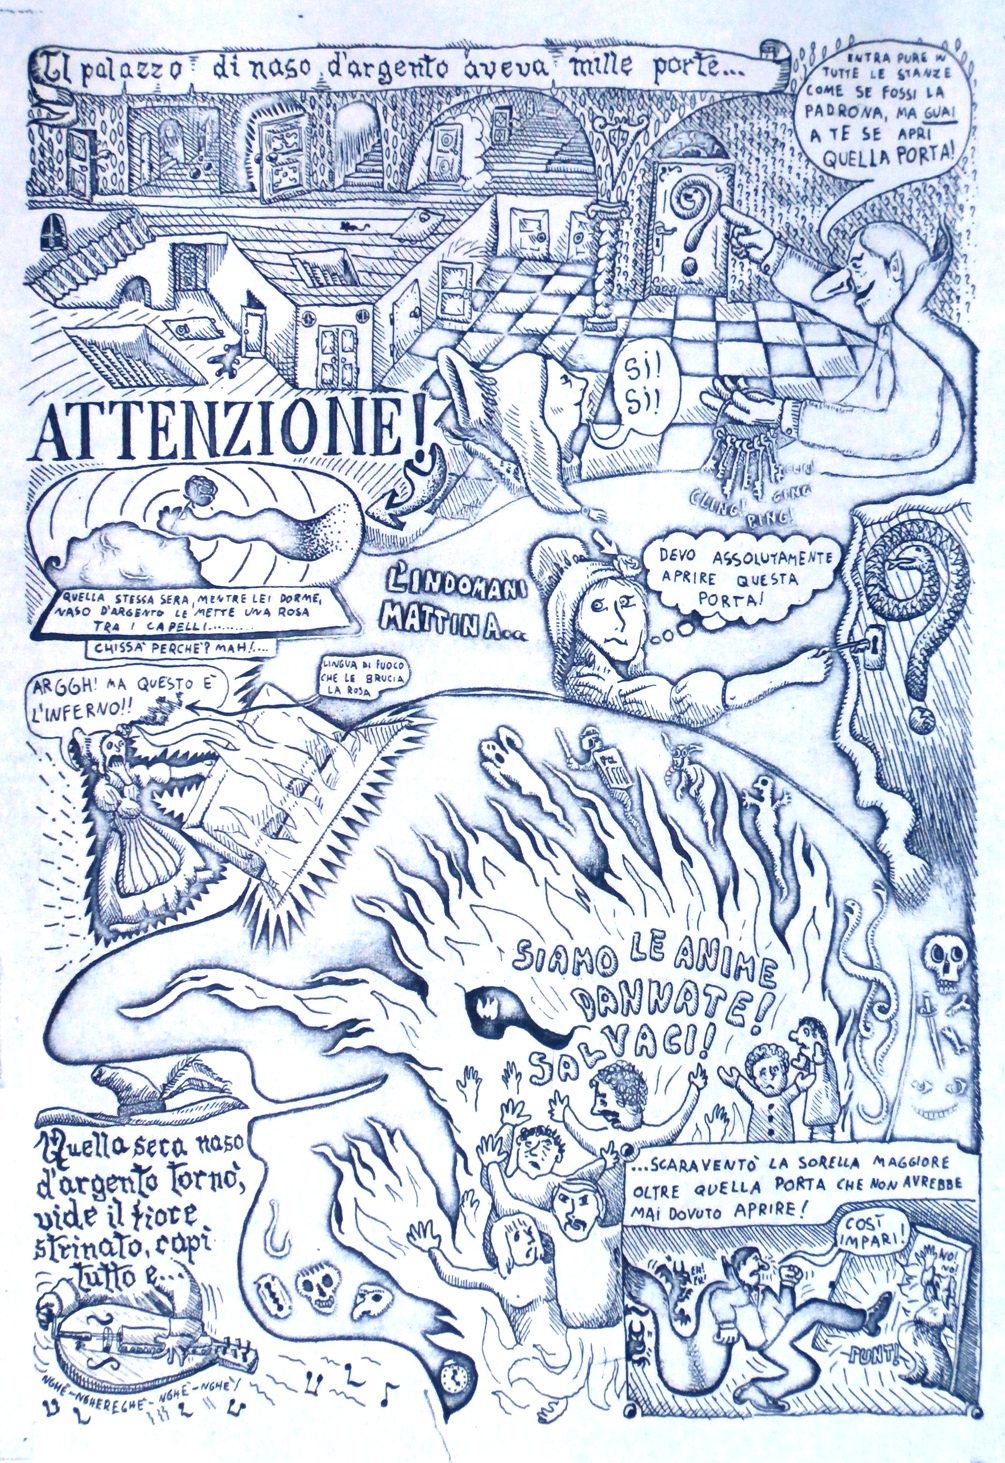 Il palazzo di naso d'argento aveva mille porte...
ENTRA PURE IN
TUTTE LE STANZE
COME SE FOSSI LA
PADRONA, MA GUAI
A TE SE APRI
QUELLA PORTA!
SI!
SI!
CLING! GING
PING!
ATTENZIONE!
QUELLA STESSA SERA, MENTRE LEI DORME,
NASO D'ARGENTO LE METTE UNA ROSA
TRA I CAPELLI.........
CHISSA' PERCHE'? MAH!....
L'INDOMANI
MATTINA...
DEVO ASSOLUTAMENTE
APRIRE QUESTA
PORTA!
ARGGH! MA QUESTO È
L'INFERNO!!
LINGUA DI FUOCO
CHE LE BRUCIA
LA ROSA
SIAMO LE ANIME
DANNATE!
SALVACI!
Quella sera naso
d'argento tornò,
vide il fiore
strinato, capì
tutto e...
NGHE-NGHEREGHE-NGHE-NGHE!
...SCARAVENTÒ LA SORELLA MAGGIORE
OLTRE QUELLA PORTA CHE NON AVREBBE
MAI DOVUTO APRIRE!
COSÌ
IMPARI!
EH!
EH!
NO!
NO!
PUNT!